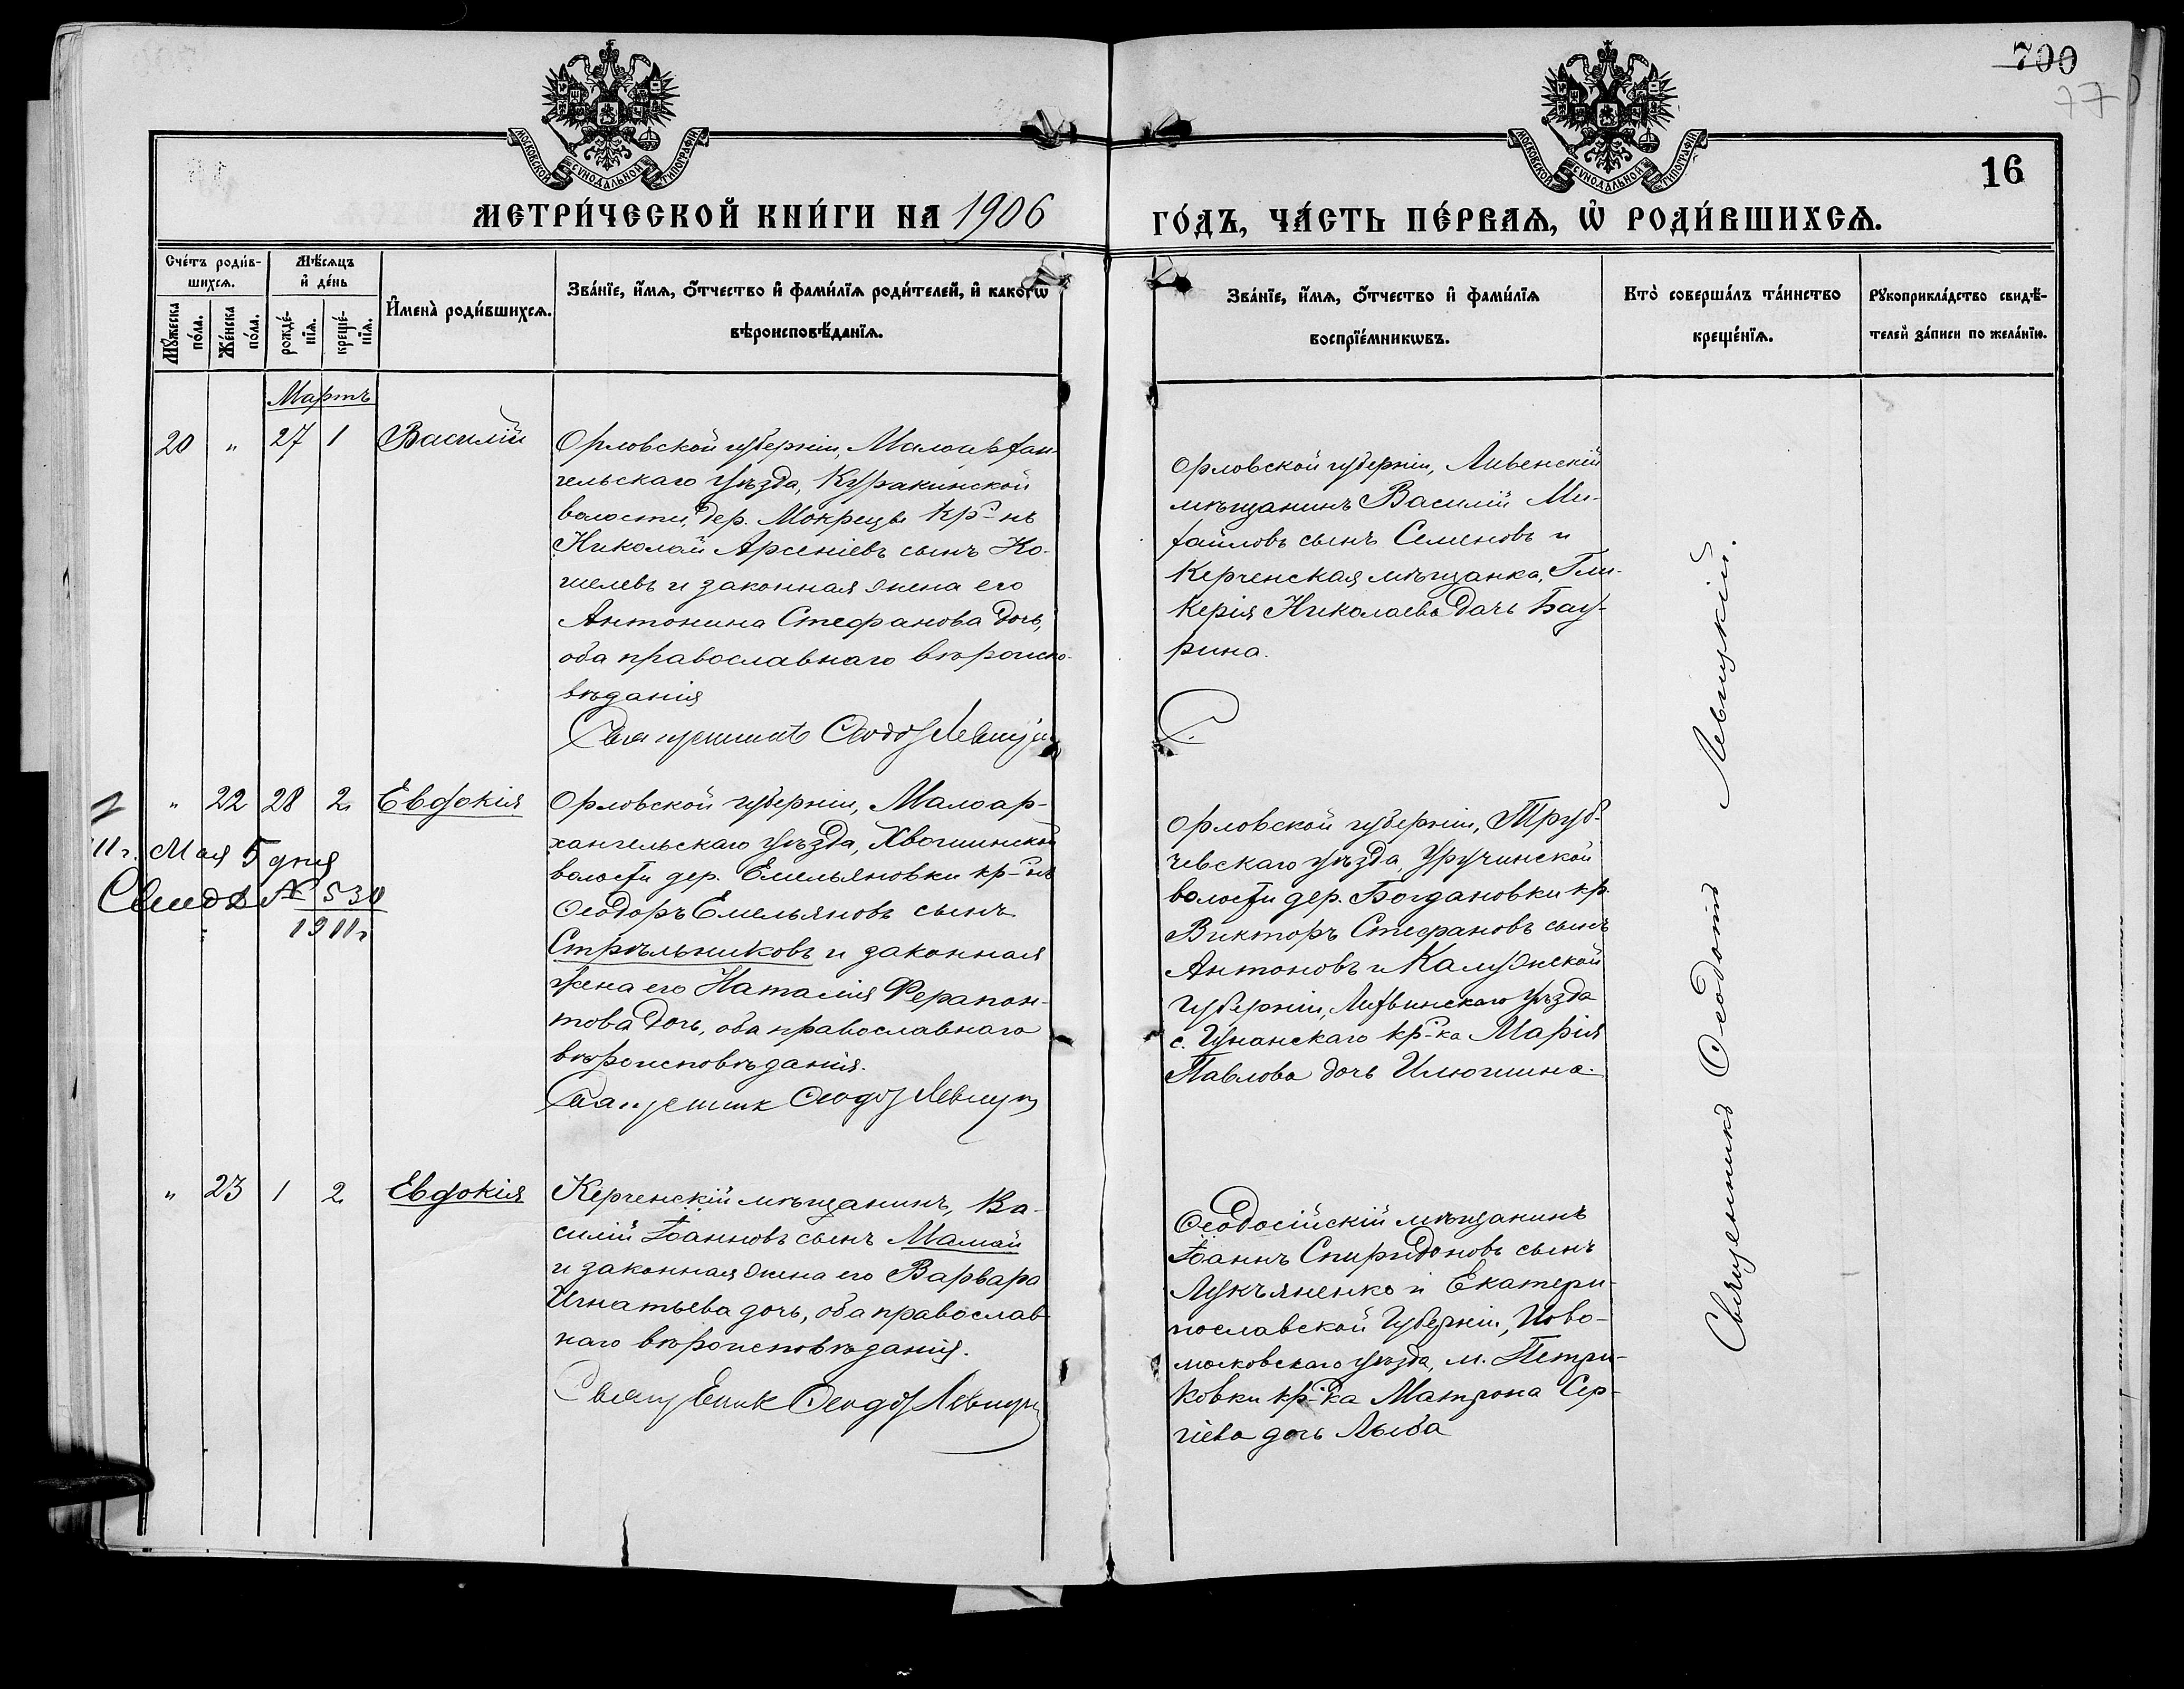 700
77
16
МОСКОВСКОЙ СѴНОДАЛЬНОЙ ТИПОГРАФІИ
МОСКОВСКОЙ СѴНОДАЛЬНОЙ ТИПОГРАФІИ
МЕТРИ́ЧЕСКОЙ КНИ́ГИ НА 1906
ГО́ДЪ, ЧА́СТЬ ПЕ́РВАѦ, Ѡ҆ РОДИ́ВШИХСѦ.
Сче́тъ роди́в-
шихсѧ.
Мꙋ́жеска по́ла.
Же́нска по́ла.
Мѣ́сѧцъ
и҆ де́нь
рожде́-
нїѧ.
креще́-
нїѧ.
И҆мена̀ роди́вшихсѧ.
Зва́нїе, и҆́мѧ, ѻ҆́тчество и҆ фами́лїѧ роди́телей, и҆ како́гѡ
вѣроисповѣ́данїѧ.
Зва́нїе, и҆́мѧ, ѻ҆́тчество и҆ фами́лїѧ
воспрїе́мникѡвъ.
Кто̀ соверша́лъ та́инство
креще́нїѧ.
Рꙋкоприкла́дство свидѣ́-
телей за́писи по жела́нїю.
Мартъ
20 " 27 1 Василій
Орловской губерніи, Малоархан-
гельскаго уѣзда, Куракинской
волости, дер. Мокрецы кр-нъ
Николай Арсеніевъ сынъ Ко-
шелевъ и законная жена его
Антонина Стефанова дочь,
оба православнаго вѣроиспо-
вѣданія
Священникъ Ѳеодоръ Левицкій
Орловской губерніи, Ливенскій
мѣщанинъ Василій Ми-
хайловъ сынъ Семеновъ и
Керченская мѣщанка, Гли-
керія Николаева дочь Бау-
рина.
" 22 28 2 Евдокія
11 г. Мая 5 дня
Свид № 530
1911 г
Орловской губерніи, Малоар-
хангельскаго уѣзда, Хвощинской
волости дер. Емельяновки кр-нъ
Ѳеодоръ Емельяновъ сынъ
Стрѣльниковъ и законная
жена его Наталія Ферапон-
това дочь, оба православнаго
вѣроисповѣданія.
Священник Ѳеодоръ Левицкій
Орловской губерніи, Труб-
чевскаго уѣзда, Уручинской
волости дер. Богдановки кр.
Викторъ Стефановъ сынъ
Антоновъ и Калужской
губерніи, Лихвинскаго уѣзда
с. кр-ка Марія
Павлова дочь Илюшина.
" 23 1 2 Евдокія
Керченскій мѣщанинъ, Ва-
силій Іоанновъ сынъ Мамай
и законная жена его Варвара
Игнатьева дочь, оба православ-
наго вѣроисповѣданія.
Священник Ѳеодоръ Левицкій
Ѳеодосійскій мѣщанинъ
Іоаннъ Спиридоновъ сынъ
Лукъяненко и Екатери-
нославской губерніи, Ново-
московскаго уѣзда, м. Петри-
ковки кр-ка Матрона Сер-
гіева дочь Лыба
Священникъ Ѳеодотъ Левицкій.